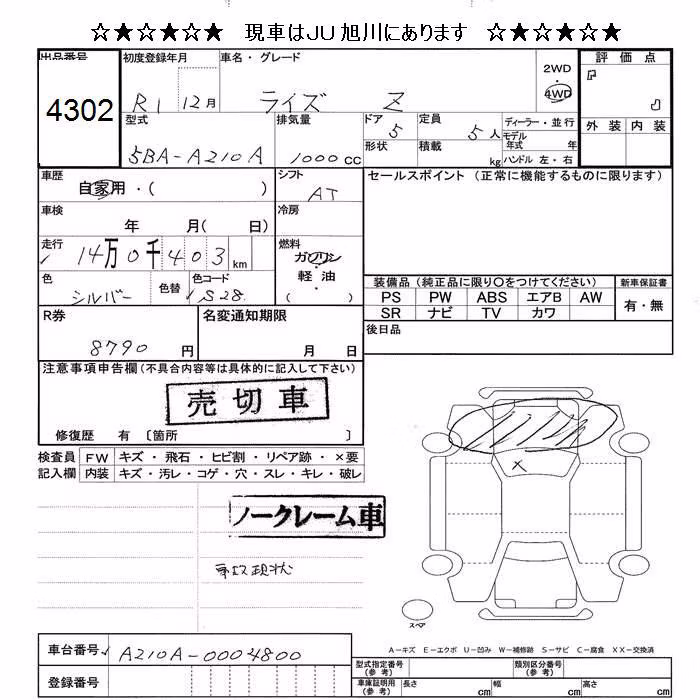 ☆★☆★☆★ 現車はJU旭川にあります ☆★☆★☆★
出品番号
4302
初度登録年月
R1 12月
車名・グレード
ライズ Z
2WD
4WD
評価点
外装 内装
型式
5BA-A210A
排気量
1000cc
ドア
5
定員
5人
形状
積載
kg
ディーラー・並行
モデル年式 年
ハンドル 左・右
車歴
自家用・( )
シフト
AT
車検
年 月( 日)
冷房
走行
14万0千403km
燃料
ガソリン
軽油
( )
色
シルバー
色替
色コード
S28
セールスポイント (正常に機能するものに限ります)
装備品 (純正品に限り○をつけてください)
PS PW ABS エアB AW
SR ナビ TV カワ
新車保証書
有・無
後日品
R券
8790円
名変通知期限
月 日
注意事項申告欄(不具合内容等は具体的に記入して下さい)
売切車
修復歴 有 〔箇所 〕
検査員記入欄
FW キズ・飛石・ヒビ割・リペア跡・×要
内装 キズ・汚レ・コゲ・穴・スレ・キレ・破レ
ノークレーム車
事故現状
×
スペア
A－キズ E－エクボ U－凹み W－補修跡 S－サビ C－腐食 XX－交換済
車台番号
A210A-0004800
登録番号
型式指定番号(参考)
類別区分番号(参考)
車庫証明用(参考)
長さ cm
幅 cm
高さ cm